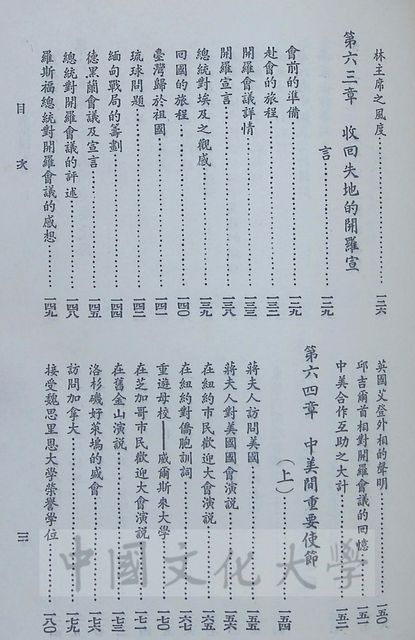 林主席之風度……一二六
第六三章 收回失地的開羅宣
言……一二九
會前的準備……一二九
赴會的旅程……一三二
開羅會議詳情……一三三
開羅宣言……一三八
總統對埃及之觀感……一三九
回國的旅程……一四〇
臺灣歸於祖國……一四一
琉球問題……一四二
緬甸戰局的籌劃……一四四
德黑蘭會議及宣言……一四五
總統對開羅會議的評述……一四八
羅斯福總統對開羅會議的感想……一四九
英國艾登外相的聲明……一五〇
邱吉爾首相對開羅會議的回憶……一五一
中美合作互助之大計……一五二
第六四章 中美間重要使節
（上）……一五四
蔣夫人訪問美國……一五五
蔣夫人對美國國會演說……一五六
在紐約市民歡迎大會演說……一六五
在紐約對僑胞訓詞……一六七
重遊母校——威爾斯來大學……一七〇
在芝加哥市民歡迎大會演說……一七一
在舊金山演說……一七三
洛杉磯好萊塢的盛會……一七六
訪問加拿大……一七九
接受魏思里恩大學榮譽學位……一八〇
目次
三
中國文化大學